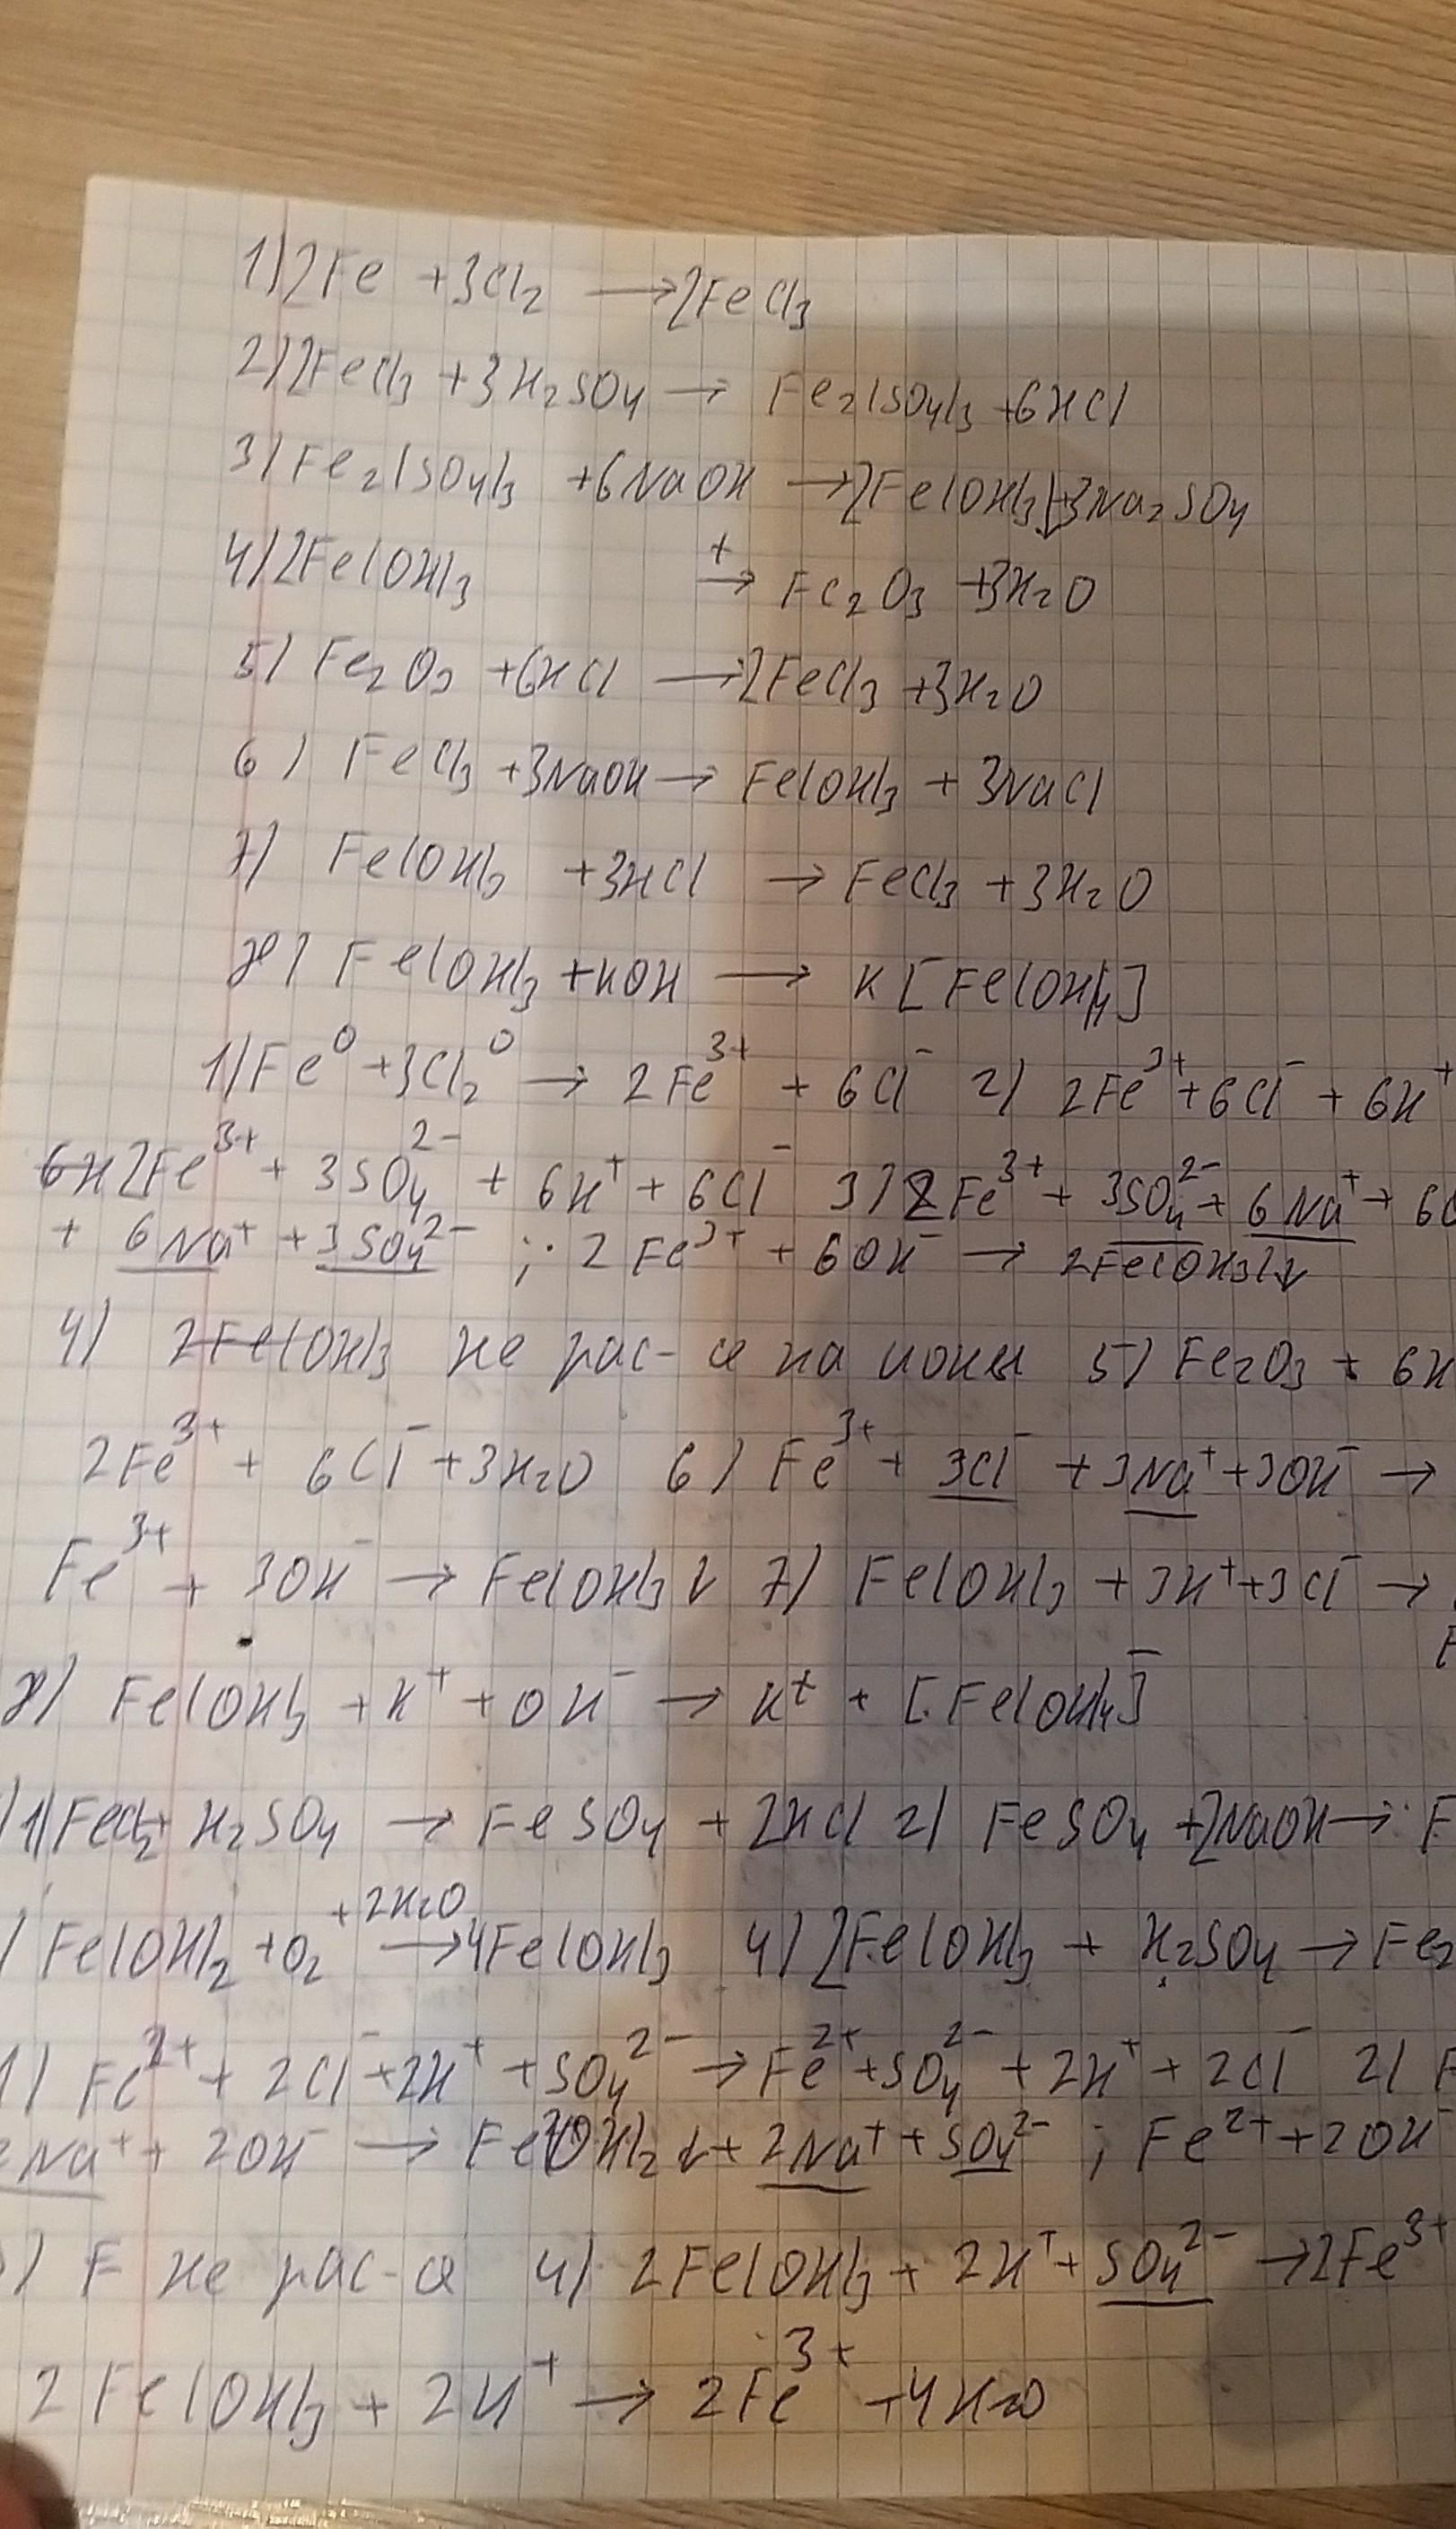 1) 2Fe + 3Cl₂ → 2FeCl₃
2) 2FeCl₃ + 3H₂SO₄ → Fe₂(SO₄)₃ + 6HCl
3) Fe₂(SO₄)₃ + 6NaOH → 2Fe(OH)₃↓ + 3Na₂SO₄
4) 2Fe(OH)₃ t→ Fe₂O₃ + 3H₂O
5) Fe₂O₃ + 6HCl → 2FeCl₃ + 3H₂O
6) FeCl₃ + 3NaOH → Fe(OH)₃ + 3NaCl
7) Fe(OH)₃ + 3HCl → FeCl₃ + 3H₂O
8) Fe(OH)₃ + KOH → K[Fe(OH)₄]
1) Fe⁰ + 3Cl₂⁰ → 2Fe³⁺ + 6Cl⁻ 2) 2Fe³⁺ + 6Cl⁻ + 6H⁺
2Fe³⁺ + 3SO₄²⁻ + 6H⁺ + 6Cl⁻ 3) 2Fe³⁺ + 3SO₄²⁻ + 6Na⁺ + 6O
+ 6Na⁺ + 3SO₄²⁻ ; 2Fe³⁺ + 6OH⁻ → 2Fe(OH)₃↓
4) 2Fe(OH)₃ не рас-ся на ионы 5) Fe₂O₃ + 6H
2Fe³⁺ + 6Cl⁻ + 3H₂O 6) Fe³⁺ + 3Cl⁻ + 3Na⁺ + 3OH⁻ →
Fe³⁺ + 3OH⁻ → Fe(OH)₃↓ 7) Fe(OH)₃ + 3H⁺ + 3Cl⁻ →
8) Fe(OH)₃ + K⁺ + OH⁻ → K⁺ + [Fe(OH)₄]⁻
1) FeCl₂ + H₂SO₄ → FeSO₄ + 2HCl 2) FeSO₄ + 2NaOH → F
) Fe(OH)₂ + O₂ + 2H₂O → 4Fe(OH)₃ 4) 2Fe(OH)₃ + H₂SO₄ → Fe₂
1) Fe²⁺ + 2Cl⁻ + 2H⁺ + SO₄²⁻ → Fe²⁺ + SO₄²⁻ + 2H⁺ + 2Cl⁻ 2) F
2Na⁺ + 2OH⁻ → Fe(OH)₂↓ + 2Na⁺ + SO₄²⁻ ; Fe²⁺ + 2OH⁻
) F не рас-ся 4) 2Fe(OH)₃ + 2H⁺ + SO₄²⁻ → 2Fe³⁺
2Fe(OH)₃ + 2H⁺ → 2Fe³⁺ + 4H₂O